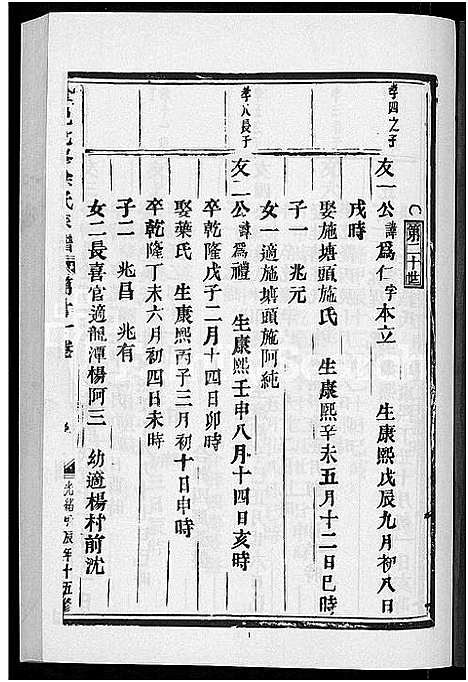 第二十世
孝四之子
友一公諱爲仁字本立 生康熙戊辰九月初八日
戌時
娶施塘頭施氏 生康熙辛未五月十二日巳時
子一 兆元
女一適施塘頭施阿純
孝八長子
友二公諱爲禮 生康熙壬申八月十四日亥時
卒乾隆戊子二月十四日卯時
娶葉氏 生康熙丙子三月初十日申時
卒乾隆丁未六月初四日未時
子二 兆昌 兆有
女二長喜官適龍潭楊阿三 幼適楊村前沈
氏宗譜 卷 光緒 辰年十五修